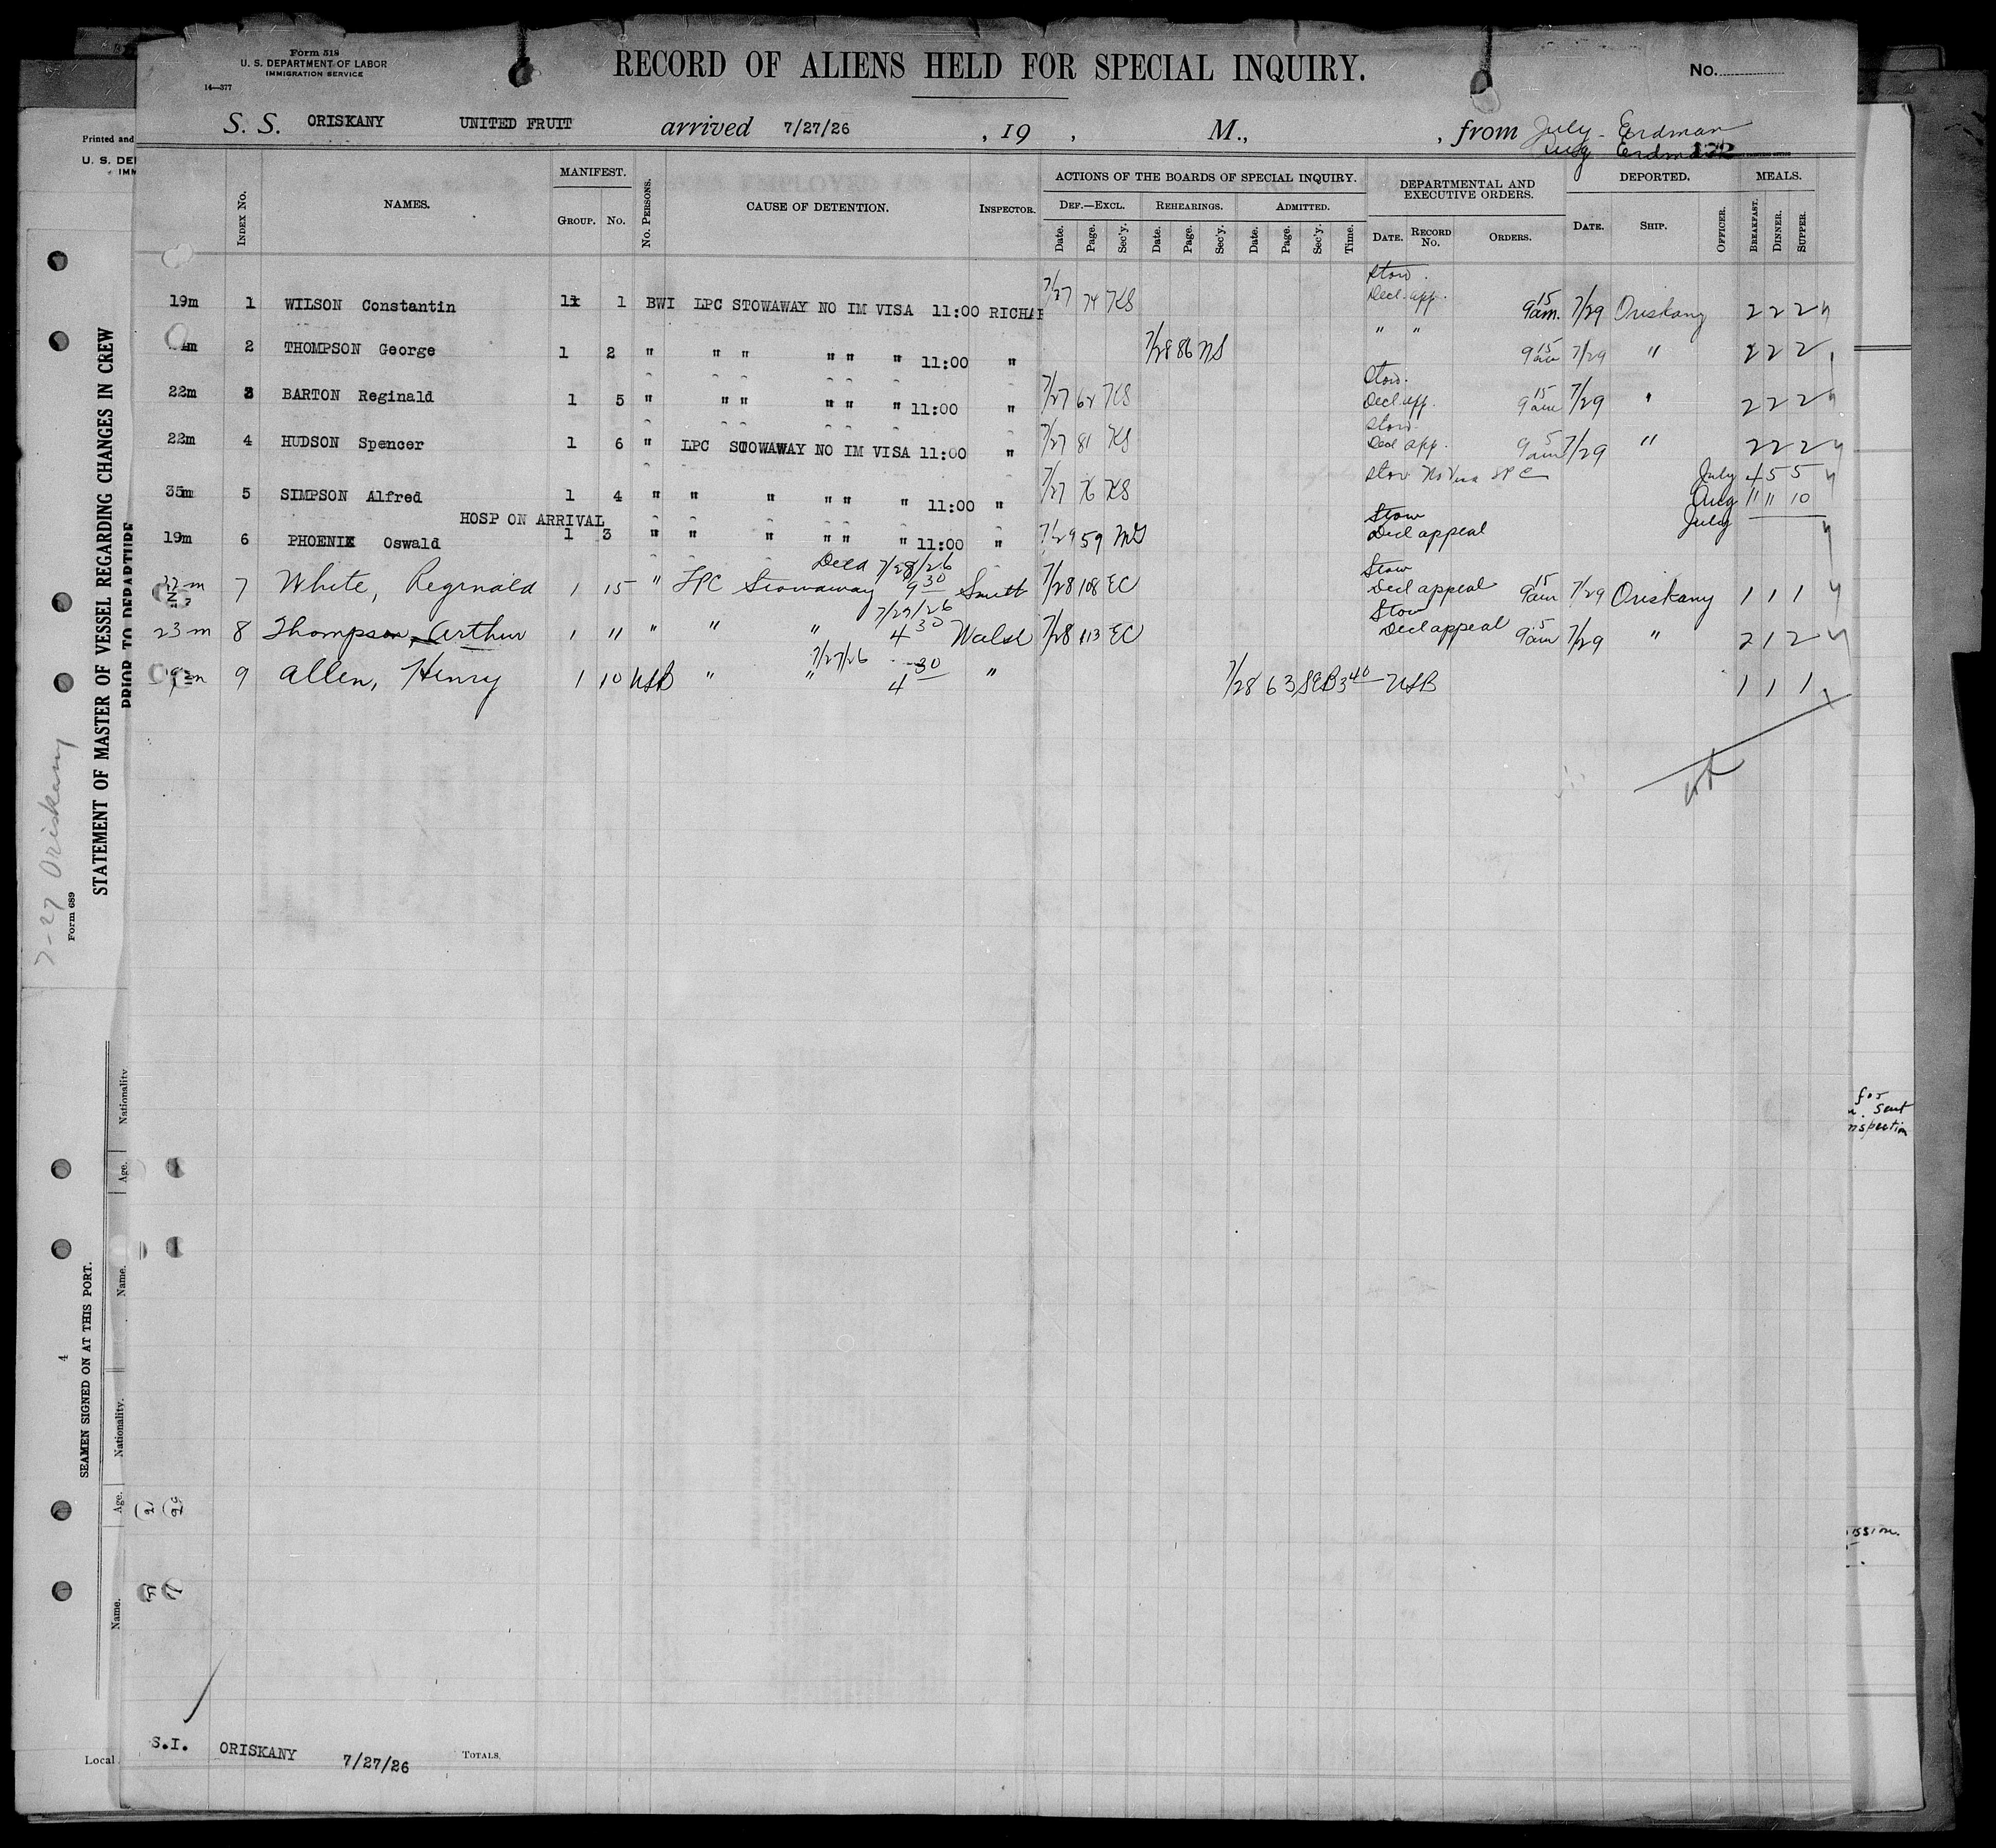 Form 518
U. S. DEPARTMENT OF LABOR
IMMIGRATION SERVICE
14—377
RECORD OF ALIENS HELD FOR SPECIAL INQUIRY.
No.
S. S. ORISKANY UNITED FRUIT arrived 7/27/26 , 19 , M., , from July - Erdman
Aug Erdman
Printed and
U. S. DE
IMM
INDEX No. NAMES. MANIFEST. GROUP. No. No. PERSONS. CAUSE OF DETENTION. INSPECTOR.
ACTIONS OF THE BOARDS OF SPECIAL INQUIRY.
DEF.—EXCL. REHEARINGS. ADMITTED.
Date. Page. Sec'y. Date. Page. Sec'y. Date. Page. Sec'y. Time.
DEPARTMENTAL AND EXECUTIVE ORDERS.
DATE. RECORD No. ORDERS.
DEPORTED.
DATE. SHIP. OFFICER.
MEALS.
BREAKFAST. DINNER. SUPPER.
Stow.
19m 1 WILSON Constantin 1 1 BWI LPC STOWAWAY NO IM VISA 11:00 RICHAR 7/27 74 KS Decl. app. 9 15 am. 7/29 Oriskany 2 2 2
m 2 THOMPSON George 1 2 " " " " " " 11:00 " 7/28 86 NS " " 9 15 am 7/29 " 2 2 2
Stow.
22m 3 BARTON Reginald 1 5 " " " " " " 11:00 " 7/27 62 KS Decl app. 9 15 am 7/29 " 2 2 2
Stow.
22m 4 HUDSON Spencer 1 6 " LPC STOWAWAY NO IM VISA 11:00 " 7/27 81 KS Decl app. 9 5 am 7/29 " 2 2 2
Stow No Visa LPC July 4 5 5
35m 5 SIMPSON Alfred 1 4 " " " " " " 11:00 " 7/27 76 KS Aug 11 11 10
HOSP ON ARRIVAL Stow July
19m 6 PHOENIX Oswald 1 3 " " " " " " 11:00 " 7/29 59 MS Decl appeal
Decd 7/28/26 Stow
22 m 7 White, Reginald 1 15 " LPC Stowaway 9 30 Smith 7/28 108 EC Decl appeal 9 15 am 7/29 Oriskany 1 1 1
7/27/26 Stow
23 m 8 Thompson, Arthur 1 11 " " " 4 30 Walsh 7/28 113 EC Decl appeal 9 5 am 7/29 " 2 1 2
7/27/26
19 m 9 Allen, Henry 1 10 USB " " 4 30 " 7/28 63 SEB 3 40 USB 1 1 1
STATEMENT OF MASTER OF VESSEL REGARDING CHANGES IN CREW
PRIOR TO DEPARTURE
7-27 Oriskany
Form 689
SEAMEN SIGNED ON AT THIS PORT.
4
Nationality
Age.
Name.
Nationality.
Age.
Name.
for
sent
inspection
ission.
S.I. ORISKANY 7/27/26 TOTALS.
Local